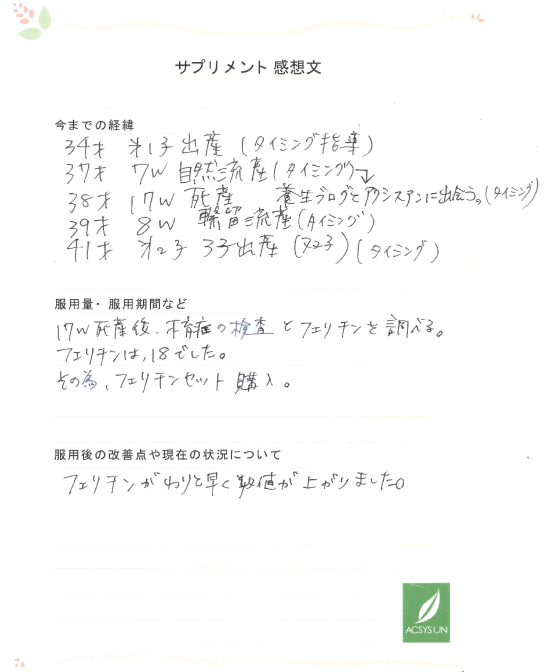 サプリメント 感想文
今までの経緯
34才 第1子出産 (タイミング指導)
37才 7W 自然流産(タイミング)
38才 17W 死産 養生ブログとアクシスアンに出会う。(タイミング)
39才 8W 稽留流産(タイミング)
41才 第2子 3子出産 (双子) (タイミング)
服用量・服用期間など
17W死産後、不育症の検査とフェリチンを調べる。
フェリチンは、18でした。
その為、フェリチンセット購入。
服用後の改善点や現在の状況について
フェリチンがわりと早く数値が上がりました。
ACSYSUN